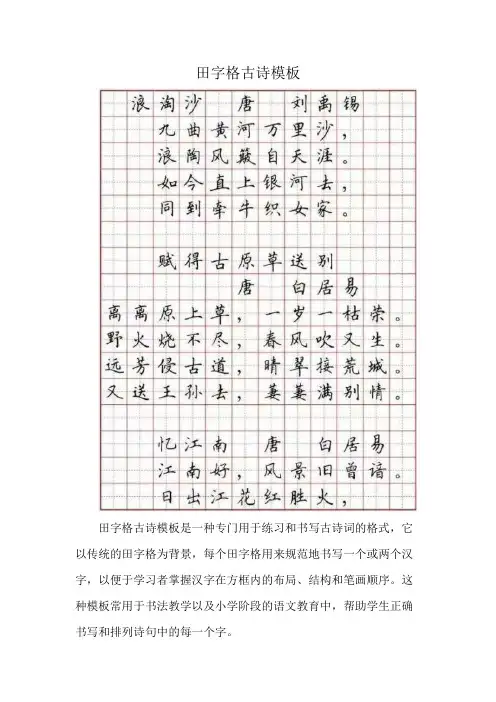 田字格古诗模板
浪淘沙 唐 刘禹锡
九曲黄河万里沙，
浪陶风簸自天涯。
如今直上银河去，
同到牵牛织女家。
赋得古原草送别
唐 白居易
离离原上草，一岁一枯荣。
野火烧不尽，春风吹又生。
远芳侵古道，晴翠接荒城。
又送王孙去，萋萋满别情。
忆江南 唐 白居易
江南好，风景旧曾谙。
日出江花红胜火，
田字格古诗模板是一种专门用于练习和书写古诗词的格式，它
以传统的田字格为背景，每个田字格用来规范地书写一个或两个汉
字，以便于学习者掌握汉字在方框内的布局、结构和笔画顺序。这
种模板常用于书法教学以及小学阶段的语文教育中，帮助学生正确
书写和排列诗句中的每一个字。